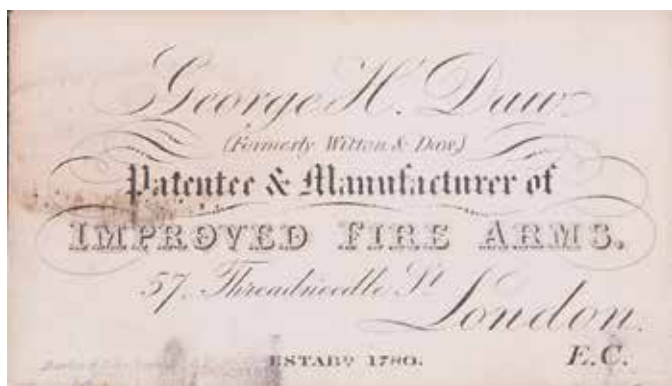 George H. Daw
(Formerly Witton & Daw)
Patentee & Manufacturer of
IMPROVED FIRE ARMS.
57, Threadneedle St
London.
ESTABD 1780.
E.C.